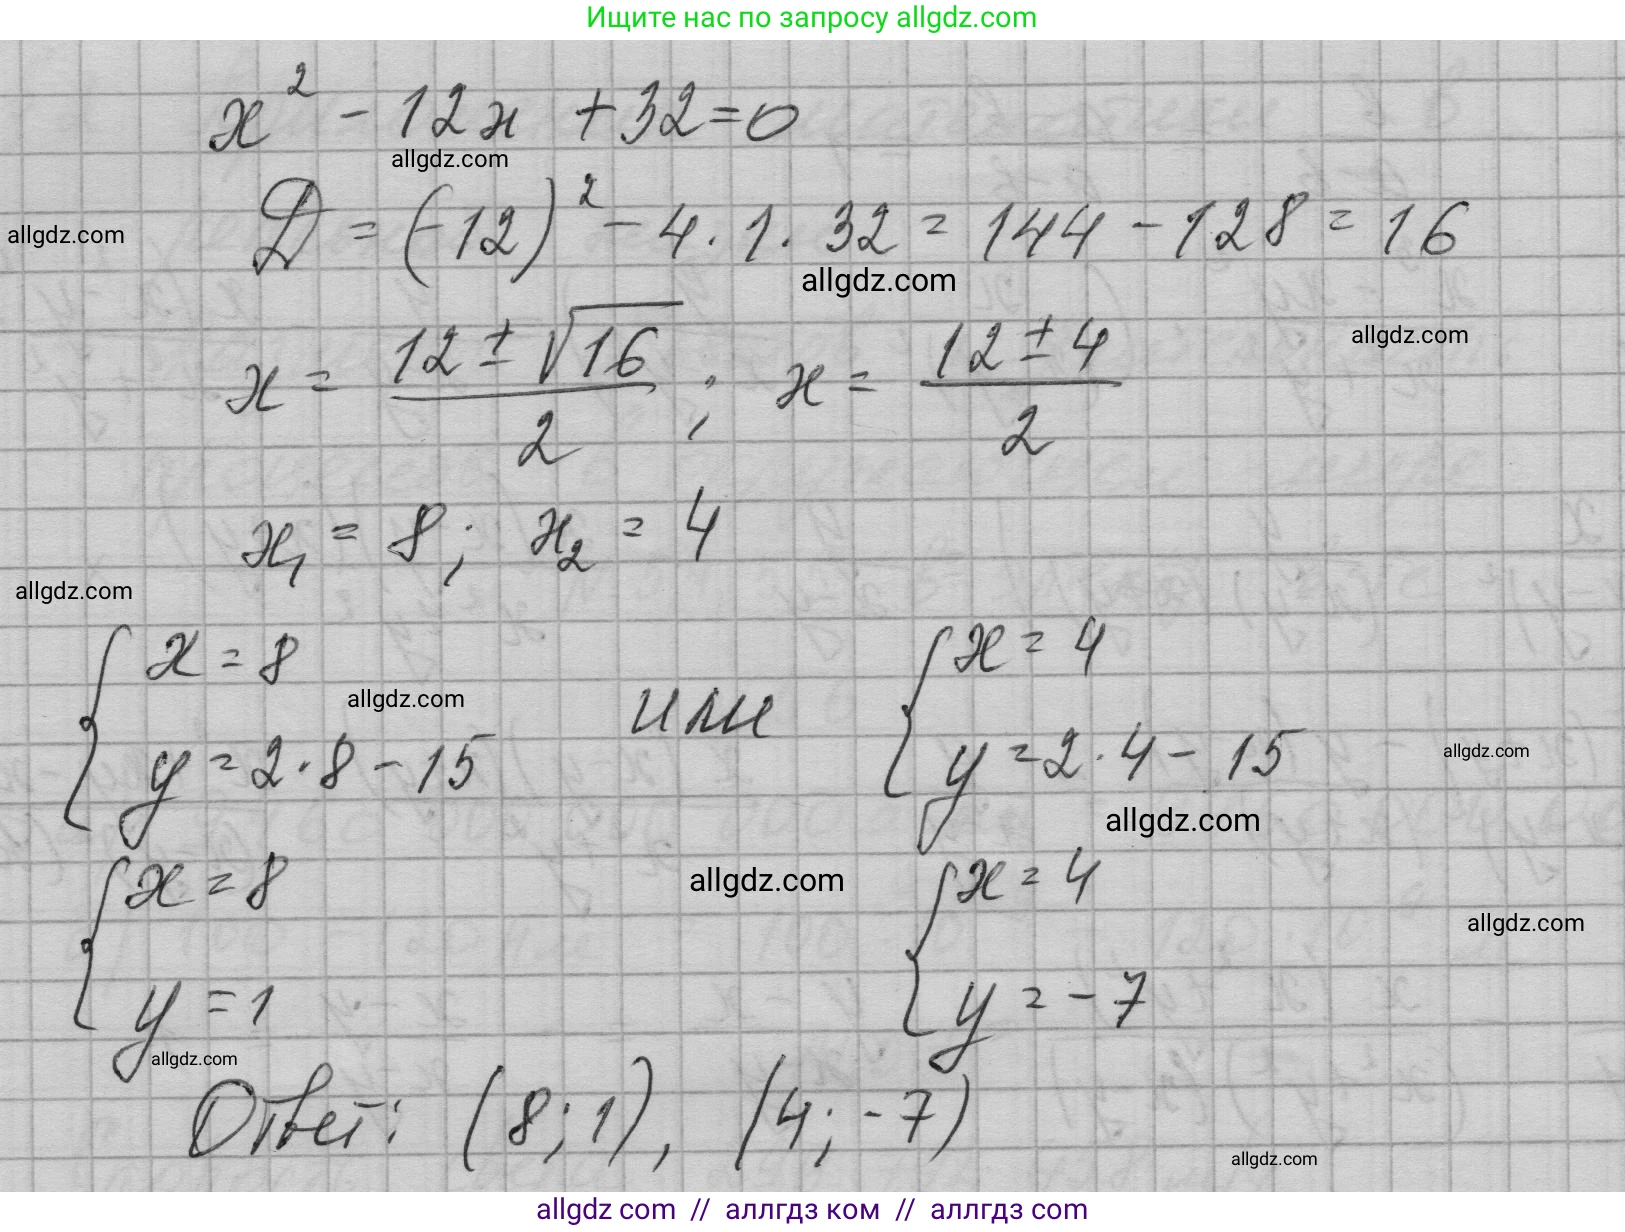 Ищите нас по запросу allgdz.com
x² - 12x + 32 = 0
allgdz.com
D = (-12)² - 4 · 1 · 32 = 144 - 128 = 16
allgdz.com
allgdz.com
x = (12 ± √16) / 2 ; x = (12 ± 4) / 2
allgdz.com
x₁ = 8; x₂ = 4
allgdz.com
{ x = 8 { x = 4
allgdz.com
или
y = 2 · 8 - 15 y = 2 · 4 - 15
allgdz.com
allgdz.com
{ x = 8 { x = 4
allgdz.com
allgdz.com
y = 1 y = -7
allgdz.com
Ответ: (8; 1), (4; -7)
allgdz.com
allgdz com // аллгдз ком // аллгдз.com